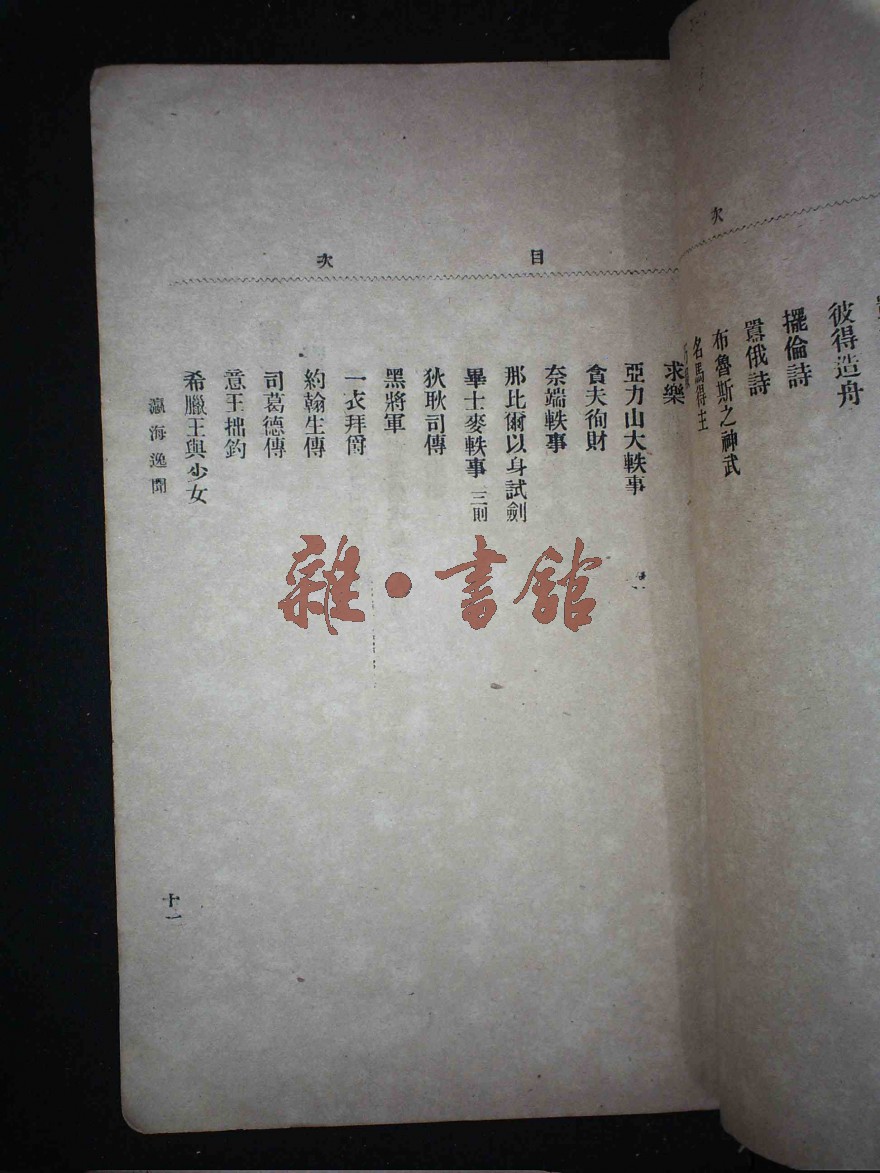 次
彼得造舟
擺倫詩
囂俄詩
布魯斯之神武
名馬得主
目次
求樂
亞力山大軼事
貪夫徇財
奈端軼事
那比爾以身試劍
畢士麥軼事 三則
狄耿司傳
黑將軍
一衣拜爵
約翰生傳
司葛德傳
意王拙釣
希臘王與少女
瀛海逸聞
十一
雜·書館